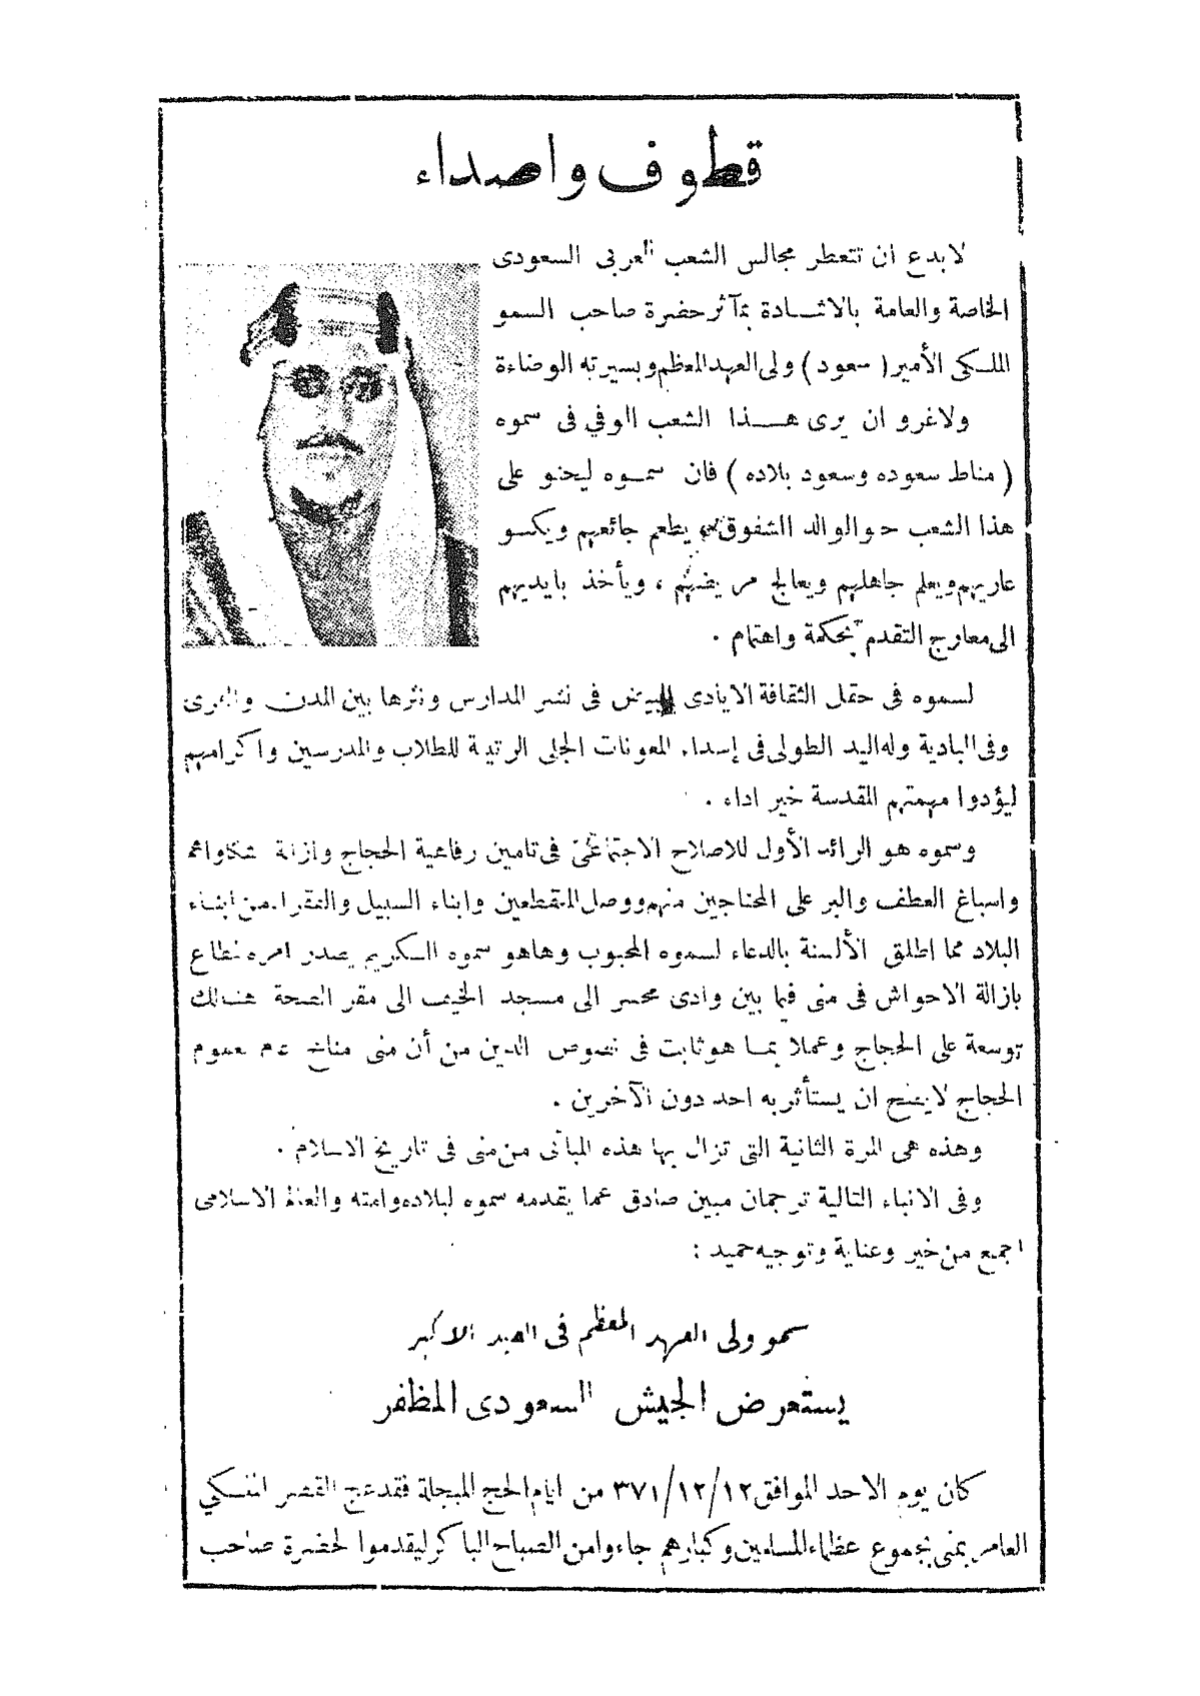 قطوف واصداء
لابدع ان تتعطر مجالس الشعب العربى السعودى
الخاصة والعامة بالاشادة بمآثر حضرة صاحب السمو
الملكى الأمير ( سعود ) ولى العهد المعظم وبسيرته الوضاءة
ولاغرو ان يرى هذا الشعب الوفي فى سموه
( مناط سعوده وسعود بلاده ) فان سموه ليحنو على
هذا الشعب حنو الوالد الشفوق يطعم جائعهم ويكسو
عاريهم ويعلم جاهلهم ويعالج مريضهم ، ويأخذ بايديهم
الى معارج التقدم بحكمة واهتمام .
لسموه فى حقل الثقافة الايادى البيض فى نشر المدارس ونثرها بين المدن والقرى
وفى البادية وله اليد الطولى فى إسداء المعونات الجلى الرتيبة للطلاب والمدرسين واكرامهم
ليؤدوا مهمتهم المقدسة خير اداء .
وسموه هو الرائد الأول للاصلاح الاجتماعى فى تامين رفاهية الحجاج وازالة شكاواهم
واسباغ العطف والبر على المحتاجين منهم ووصل المنقطعين وابناء السبيل والفقراء من ابناء
البلاد مما اطلق الألسنة بالدعاء لسموه المحبوب وهاهو سموه الكريم يصدر امره المطاع
بازالة الاحواش فى منى فيما بين وادى محسر الى مسجد الخيف الى مقر الصحة هنالك
توسعة على الحجاج وعملا بما هو ثابت فى نصوص الدين من أن منى مناخ عام لعموم
الحجاج لايصح ان يستأثر به احد دون الآخرين .
وهذه هى المرة الثانية التى تزال بها هذه المبانى من منى فى تاريخ الاسلام .
وفى الانباء التالية ترجمان مبين صادق عما يقدمه سموه لبلاده وامته والعالم الاسلامى
اجمع من خير وعناية وتوجيه حميد :
سمو ولى العهد المعظم فى العيد الاكبر
يستعرض الجيش السعودى المظفر
كان يوم الاحد الموافق ٣٧١/١٢/١٢ من ايام الحج المبجلة فقد عج القصر الملكي
العامر بمنى بجموع عظماء المسلمين وكبارهم جاءوا من الصباح الباكر ليقدموا لحضرة صاحب